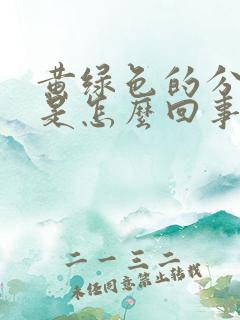 黄绿色的分
是怎麽回事
二一三二
未经同意禁止转载